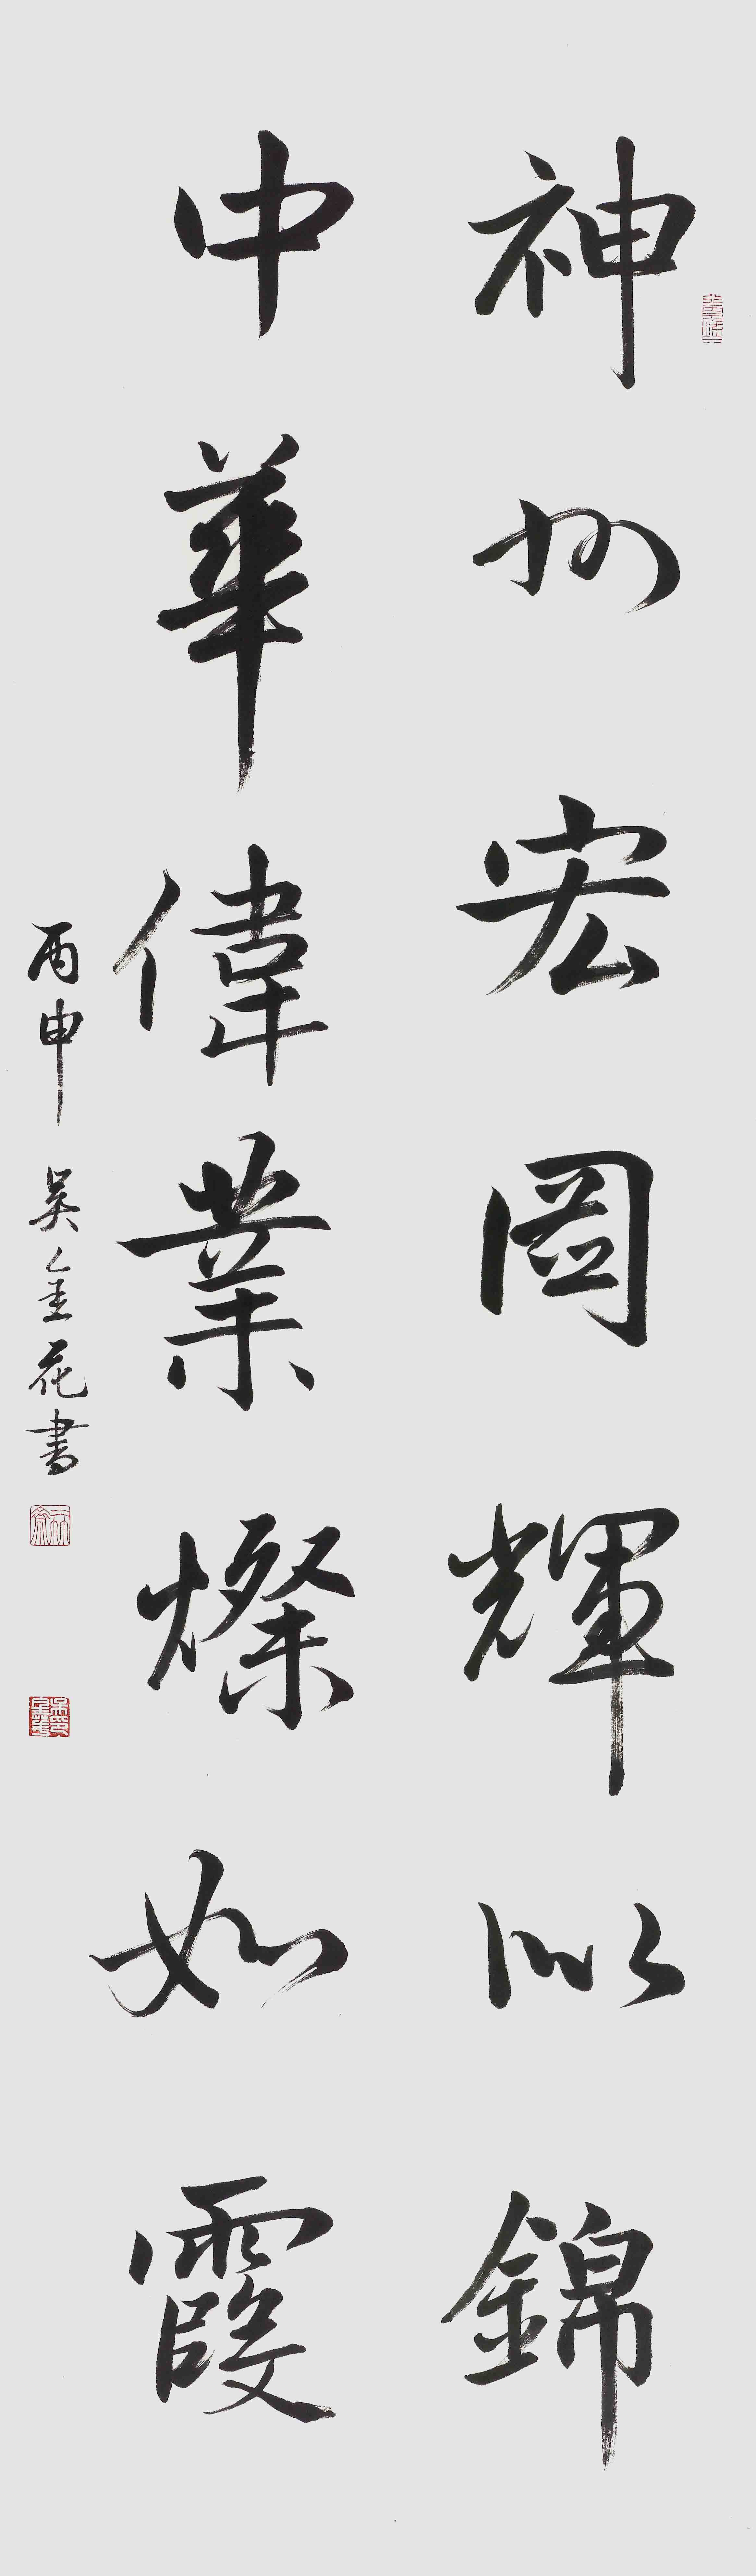 神州宏圖輝似錦
中華偉業燦如霞
丙申 吴金花書